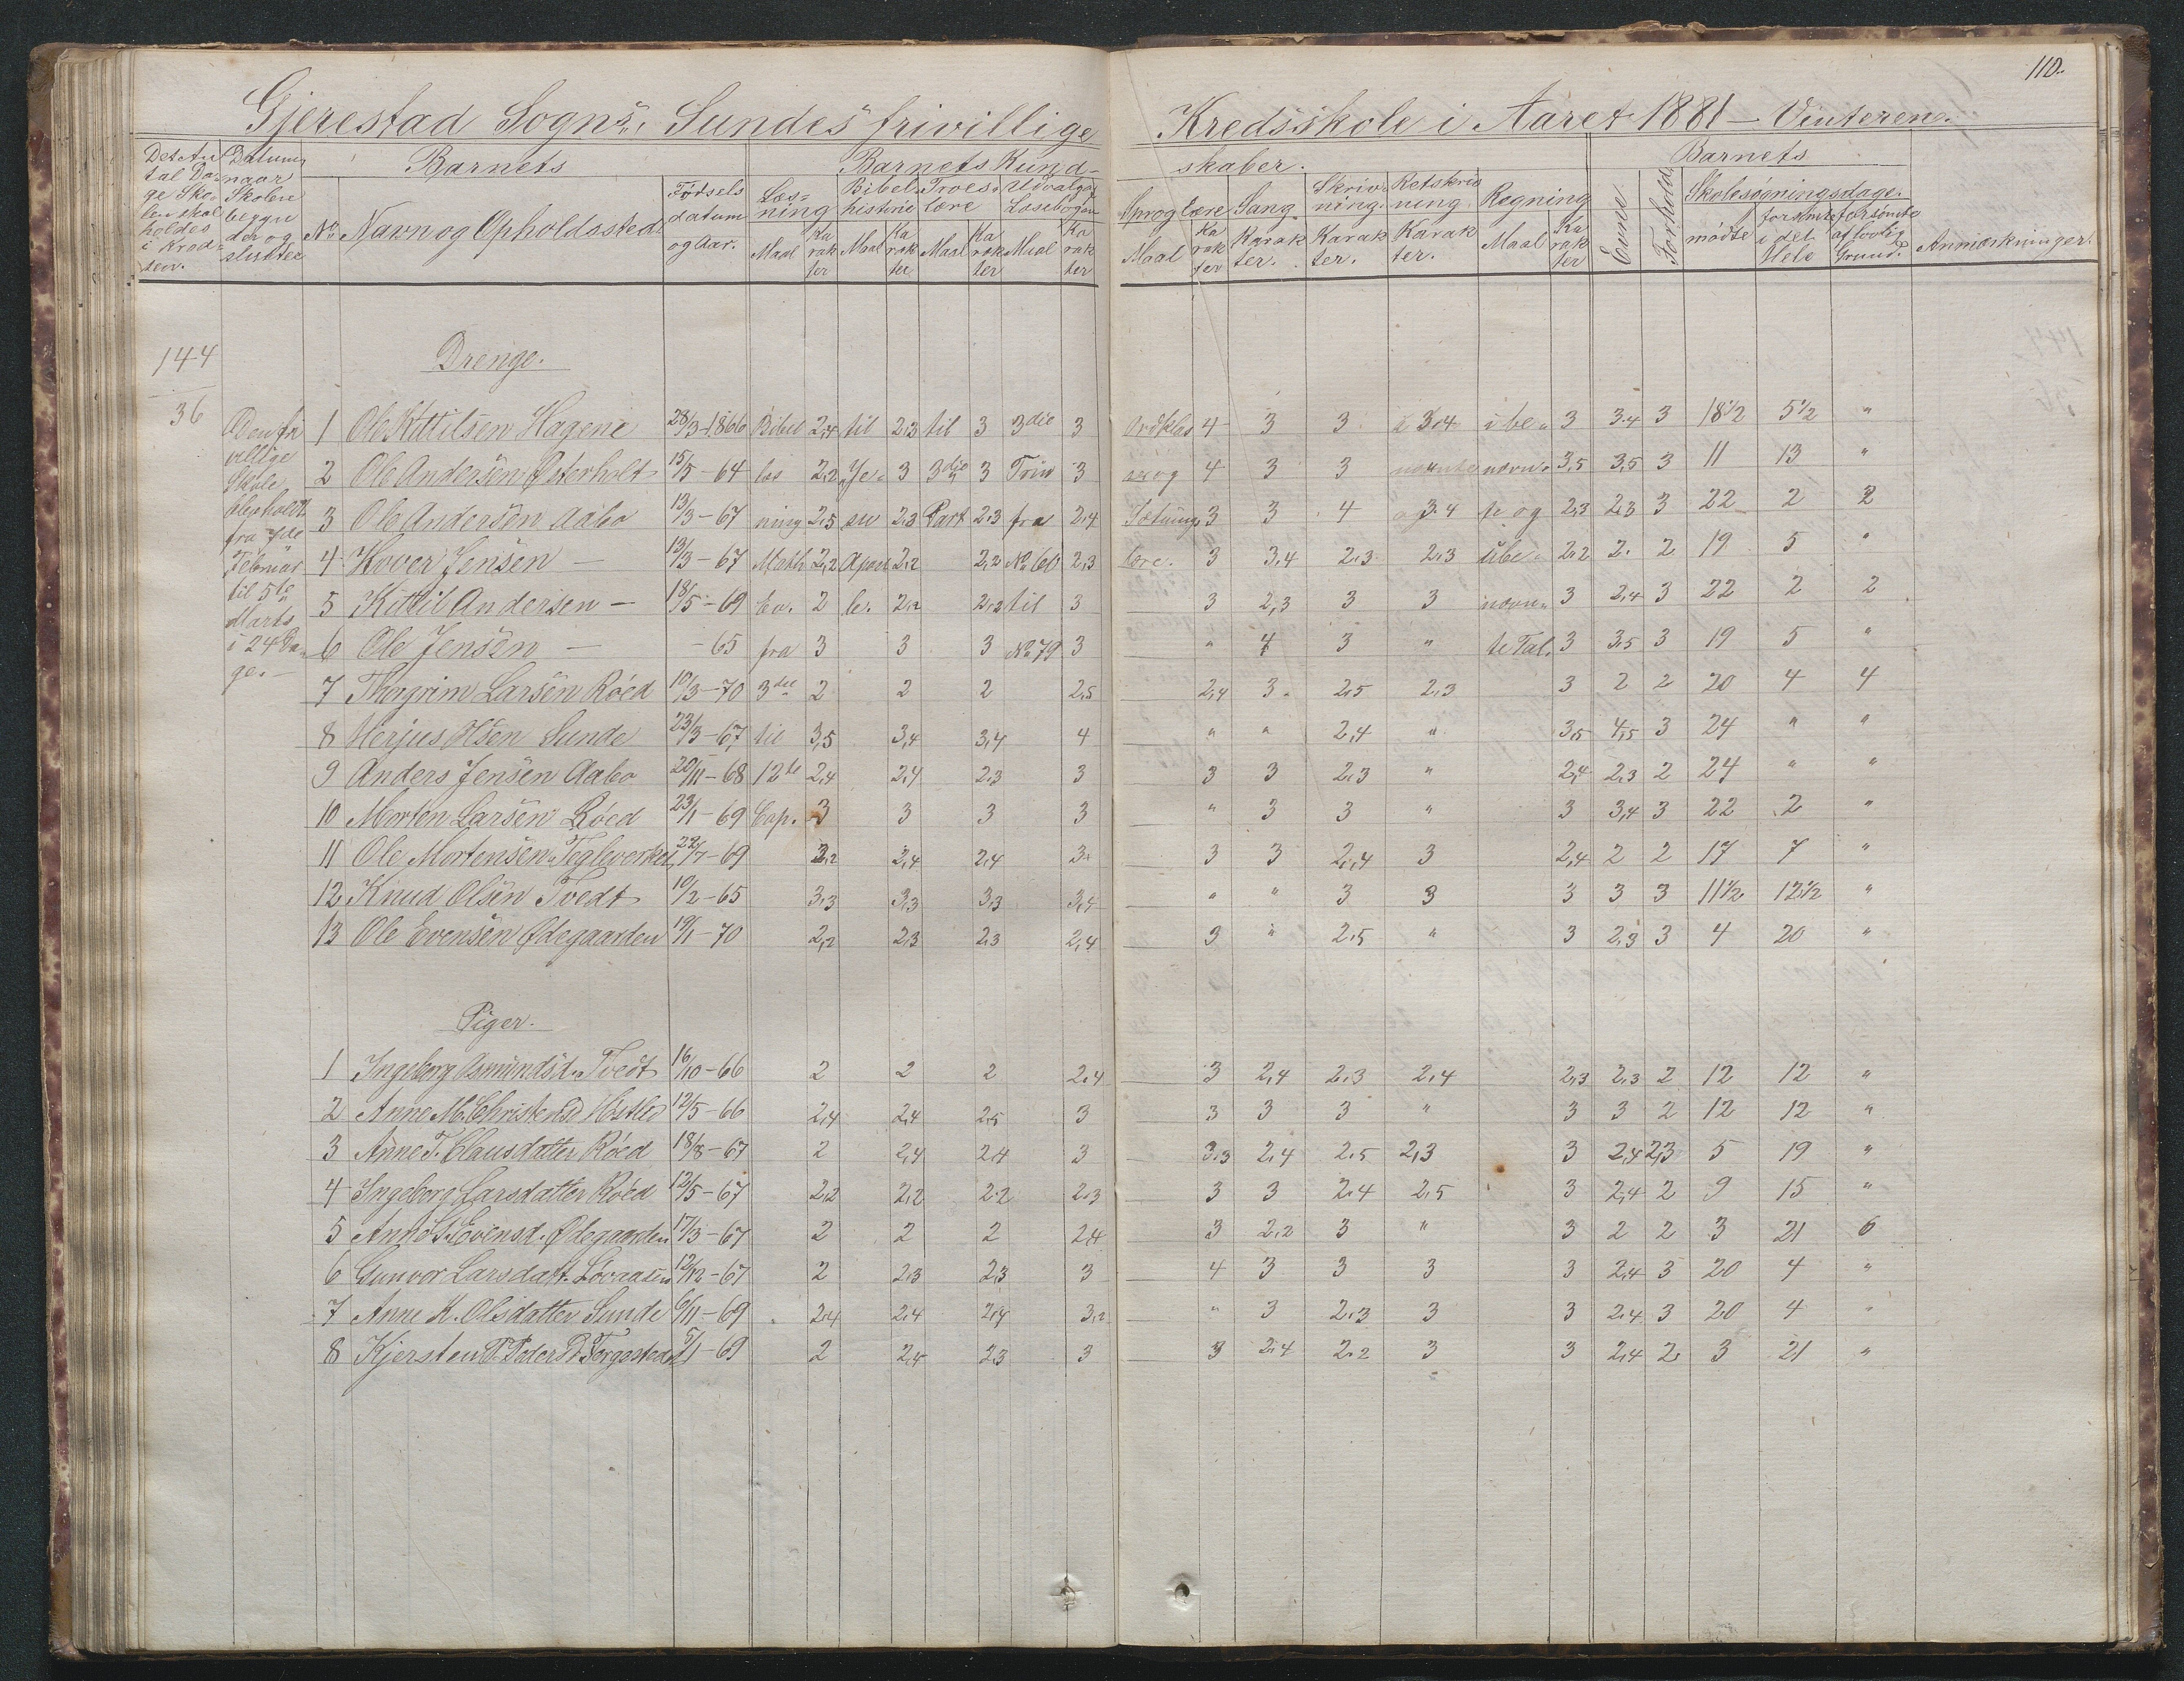 110.
Gjerestad Sogns, Sundes frivillige Kredsskole i Aaret 1881 – Vinteren.
Det Antal Dage Skolen skal holdes i Kredsen.
Datum naar Skolen begynder og slutter
Barnets
No Navn og Opholdssted
Fødselsdatum og Aar.
Barnets Kundskaber.
Læsning Maal Karakter
Bibelhistorie Maal Karakter
Troeslære Maal Karakter
Udvalg af Læsebogen Maal Karakter
Sproglære Maal Karakter
Sang Karakter.
Skrivning. Karakter.
Retskrivning Karakter.
Regning Maal Karakter
Barnets
Evne. Forhold
Skolesøgningsdage.
mødte forsømte i det Hele forsømte af lovlig Grund.
Anmærkninger.
144
36
Den frivillige Skole er holdt fra 7de Februar til 5te Marts i 24 Dage.
Drenge.
1 Ole Kittilsen Hagene 28/3-1866 Bibel 2,4 til 2,3 til 3 3die 3 Ordklas 4 3 3 3,4 i be- 3 3,4 3 18½ 5½ "
2 Ole Andersen Østerholt 15/5-64 læs 2,2 Je- 3 3die 3 Trin 3 ser og 4 3 3 nævn- 3,5 3,5 3 11 13 "
3 Ole Andersen Aabo 13/3-67 ning 2,5 su 2,3 Part 2,3 fra 2,4 Sætnings 3 3 4 3,4 te og 2,3 2,3 3 22 2 2
4 Hover Jensen – 13/3-67 Math 2,2 Apost 2,2 2,2 No 60 2,3 lære. 3 3,4 2,3 2,3 ube- 2,2 2. 2 19 5 "
5 Kittil Andersen – 18/5-69 Ev. 2 le. 2,2 2,2 til 3 3 2,3 3 3 nævn- 3 2,4 3 22 2 2
6 Ole Jensen – -65 fra 3 3 3 No 79 3 " 4 3 " te Tal. 3 3,5 3 19 5 "
7 Thorgrim Larsen Røed 10/3-70 3die 2 2 2 2,5 2,4 3 2,5 2,3 3 2 2 20 4 4
8 Herjus Olsen Sunde 23/3-67 til 3,5 3,4 3,4 4 " " 2,4 " 3,5 4,5 3 24 " "
9 Anders Jensen Aabo 20/11-68 12te 2,4 2,4 2,3 3 3 3 2,3 " 2,4 2,3 2 24 " "
10 Morten Larsen Røed 23/1-69 Cap. 3 3 3 3 " 3 3 " 3 3,4 3 22 2 "
11 Ole Mortensen Tegleverket 22/7-69 3,2 2,4 2,4 3 3 3 2,4 3 2,4 2 2 17 7 "
12 Knud Olsen Tvedt 10/2-65 3,3 3,3 3,3 3,4 " " 3 3 3 3 3 11½ 12½ "
13 Ole Evensen Ødegaarden 19/1-70 2,2 2,3 2,3 2,4 3 " 2,5 " 3 2,3 3 4 20 "
Piger.
1 Ingeborg Asmundsd. Tvedt 16/10-66 2 2 2 2,4 3 2,4 2,3 2,4 2,3 2,3 2 12 12 "
2 Anne M. Christensd 12/5-66 2,4 2,4 2,5 3 3 3 3 " 3 3 2 12 12 "
3 Anne T. Clausdatter Røed 18/8-67 2 2,4 2,4 3 3,3 2,4 2,5 2,3 3 2,4 2,3 5 19 "
4 Ingeborg Larsdatter Røed 12/5-67 2,2 2,2 2,2 2,3 3 3 2,4 2,5 3 2,4 2 9 15 "
5 Anne S. Evensd. Ødegaarden 17/3-67 2 2 2 2,4 3 2,2 3 " 3 2 2 3 21 6
6 Gunvor Larsdatt. Løvaasen 12/12-67 2 2,3 2,3 3 4 3 3 3 3 2,4 3 20 4 "
7 Anne K. Olsdatter Sunde 6/11-69 2,4 2,4 2,4 3,2 " 3 2,3 3 3 2,4 3 20 4 "
8 Kjersten P. Peders D. 5/1-69 2 2,4 2,3 3 3 2,4 2,2 3 3 2,4 2 3 21 "